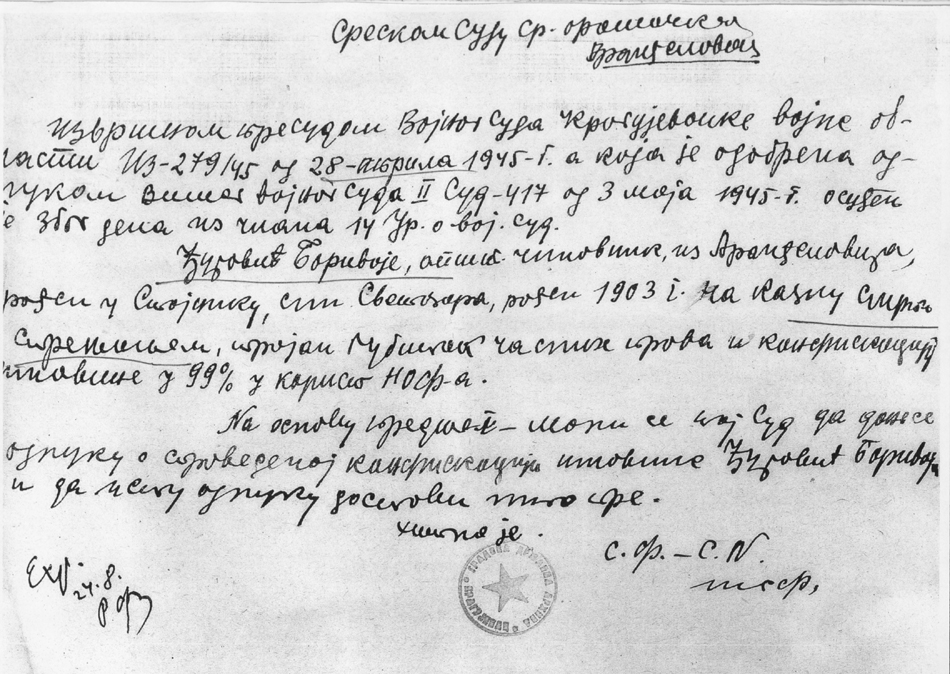 Среском Суду ср. орашачког
Аранђеловац
Извршном пресудом Војног Суда Крагујевачке војне об-
ласти Из-279/45 од 28-априла 1945-г. а која је одобрена од-
луком Вишег Војног Суда II Суд-417 од 3 маја 1945-г. осуђен
је због дела из члана 14 Ур. о вој. суд.
Ђуровић Боривоје, општ. чиновник, из Аранђеловца,
рођен у Стојнику, од Светозара, рођен 1903 г. на казну смрти
стрељањем, трајан губитак часних права и конфискацију
имовине у 99% у корист НОФ-а.
На основу предњег – моли се тај Суд да донесе
одлуку о спроведеној конфискацији имовине Ђуровић Боривоја
и да исту одлуку достави што пре.
хитно је.
С.Ф. – С.N.
24.8.